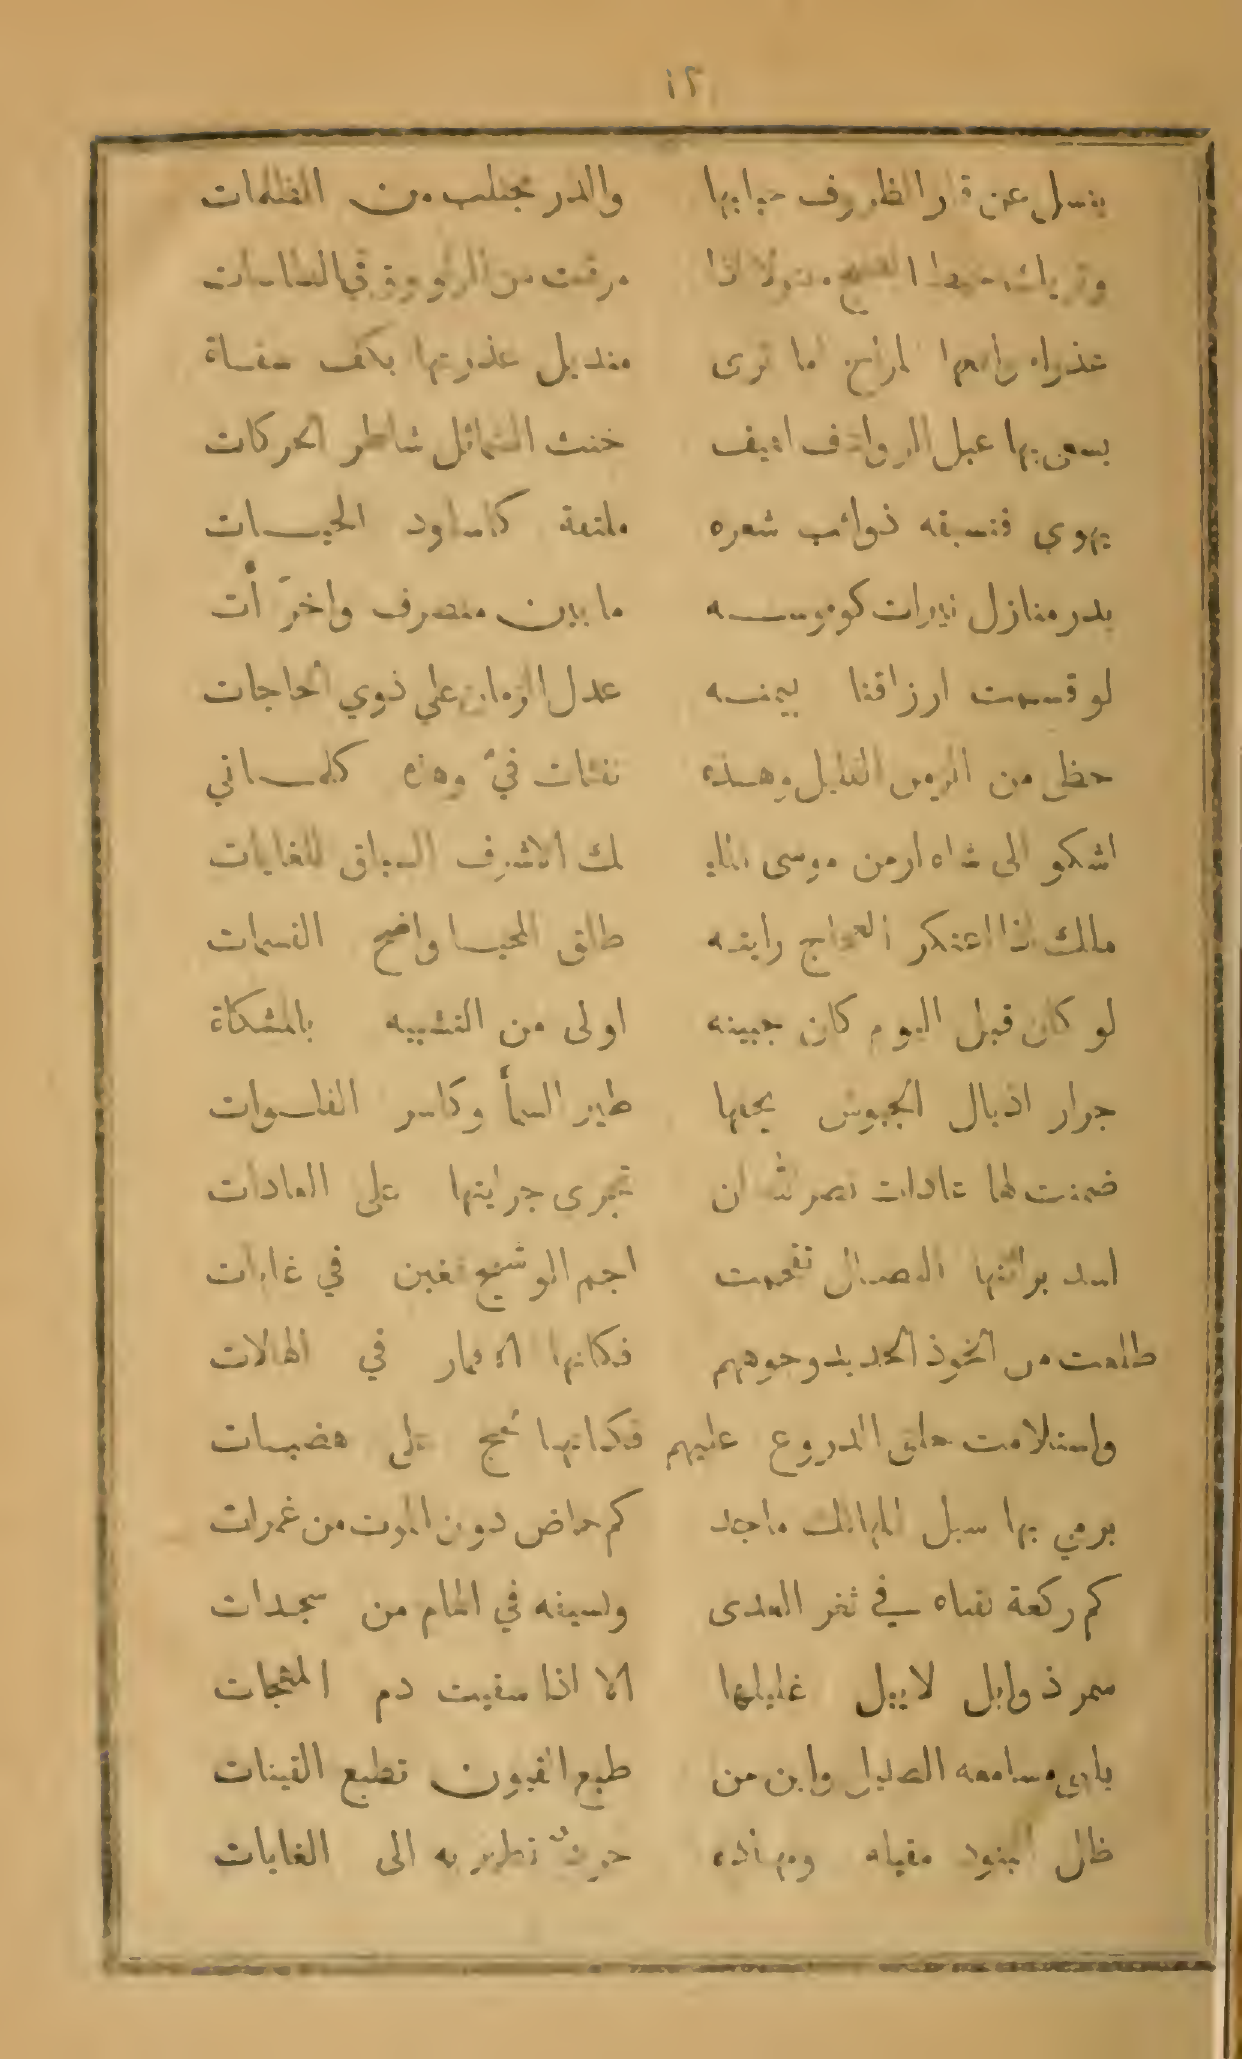 ١٢
ينسل عن قار الظروف حبابها والدر مجتلب من الظلمات
عذراء واقعها المزاج اما ترى منديل عذرتها بكف سقاة
يسعى بها عبل الروادف اهيف خنث الشمائل شاطر الحركات
يهوي فتسبقه ذوائب شعره ملتفة كاساود الحيــات
بدر منازل نيرات كووسـه ما بين منصرف واخرَ أت
لو قسمت ارزاقنا بيمنـه عدل الزمان علي ذوي الحاجات
حظي من الزمن القليل وهـذه نفثات فيّ وهذه كلمـاتي
اشكو الى شاه ارمن موسى الملك الاشرف السباق للغايات
مالك اذا اعتكر العجاج رايتـه طلق المحيـا واضح القسمات
لو كان قبل اليوم كان جبينه اولى من التشبيه بالمشكاة
جرار اذيال الجيوش يحفها طير السمأ وكاسر الفلـوات
ضمنت لها عادات نصرك ان تجرى جرايتها على العادات
اسد براثنها النصال تقحمت اجم الوشيج فغبن في غابات
طلعت من الخوذ الحديد وجوههم فكانها الاقمار في الهالات
واستلأمت حلق الدروع عليهم فكانها لجج على هضبـات
يرمي بها سبل المهالك ماجد كم خاض دون الموت من غمرات
كم ركعة لقناه في ثغر العدى ولسيفه في الهام من سجـدات
سمر ذوابل لا يبل غليلها الا اذا سقيت دم المهجات
طبع القيون تطبع القينات
ظل البنود مقيله ومهاده الى الغابات